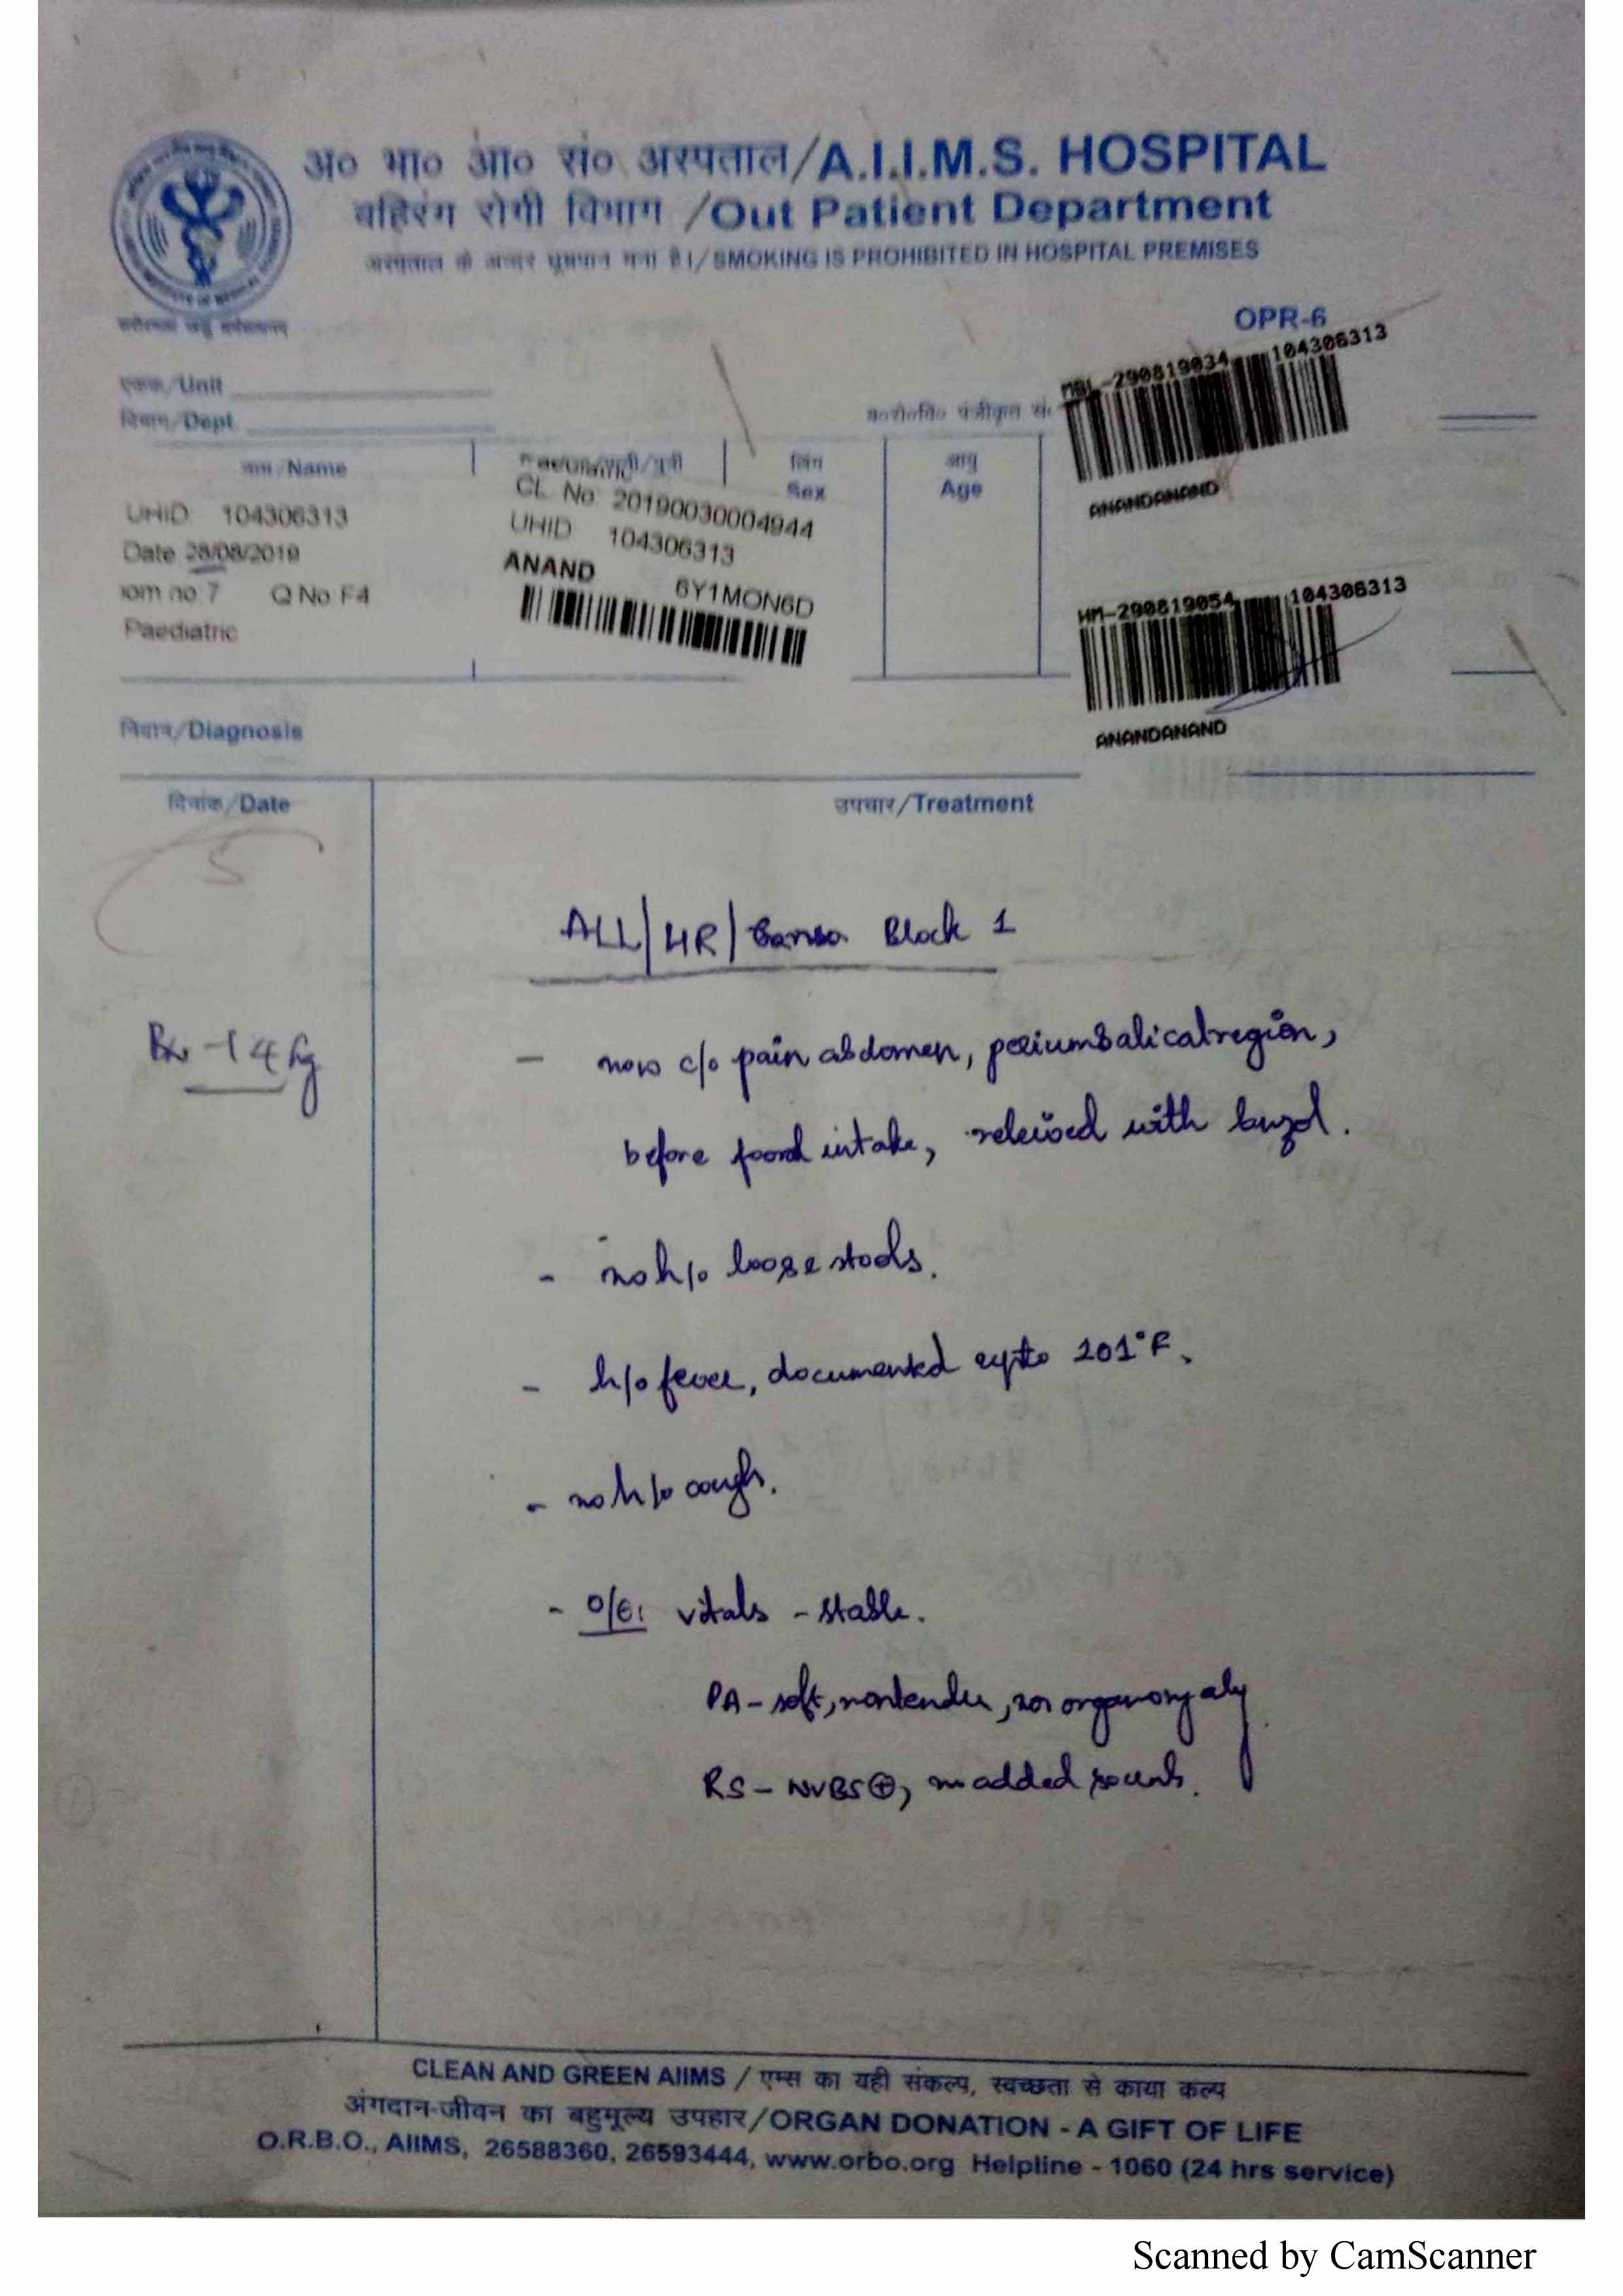 अ० भा० आ० सं० अस्पताल/A.I.I.M.S. HOSPITAL
बहिरंग रोगी विभाग /Out Patient Department
अस्पताल के अन्दर धूम्रपान मना है।/SMOKING IS PROHIBITED IN HOSPITAL PREMISES
OPR-6
MBL-290819034 104306313
एकक/Unit
विभाग/Dept
ब०रो०वि० पंजीकृत सं०
ANANDANAND
नाम/Name
लिंग
Sex
आयु
Age
UHID 104306313
Date 28/08/2019
om no 7 Q No F4
Paediatric
CL No 20190030004944
UHID 104306313
ANAND 6Y1MON6D
HM-290819054 104306313
ANANDANAND
निदान/Diagnosis
दिनांक/Date
उपचार/Treatment
5
ALL/HR/ Block 1
14 kg
- now c/o pain abdomen, periumbalical region,
before food intake, releived with
- no h/o loose stools.
- h/o fever, documented upto 101°F.
- no h/o cough.
- O/E: vitals - stable.
PA - soft, nontender, no organomegaly
RS - NVBS⊕, no added sounds.
CLEAN AND GREEN AIIMS / एम्स का यही संकल्प, स्वच्छता से काया कल्प
अंगदान-जीवन का बहुमूल्य उपहार/ORGAN DONATION - A GIFT OF LIFE
O.R.B.O., AIIMS, 26588360, 26593444, www.orbo.org Helpline - 1060 (24 hrs service)
Scanned by CamScanner